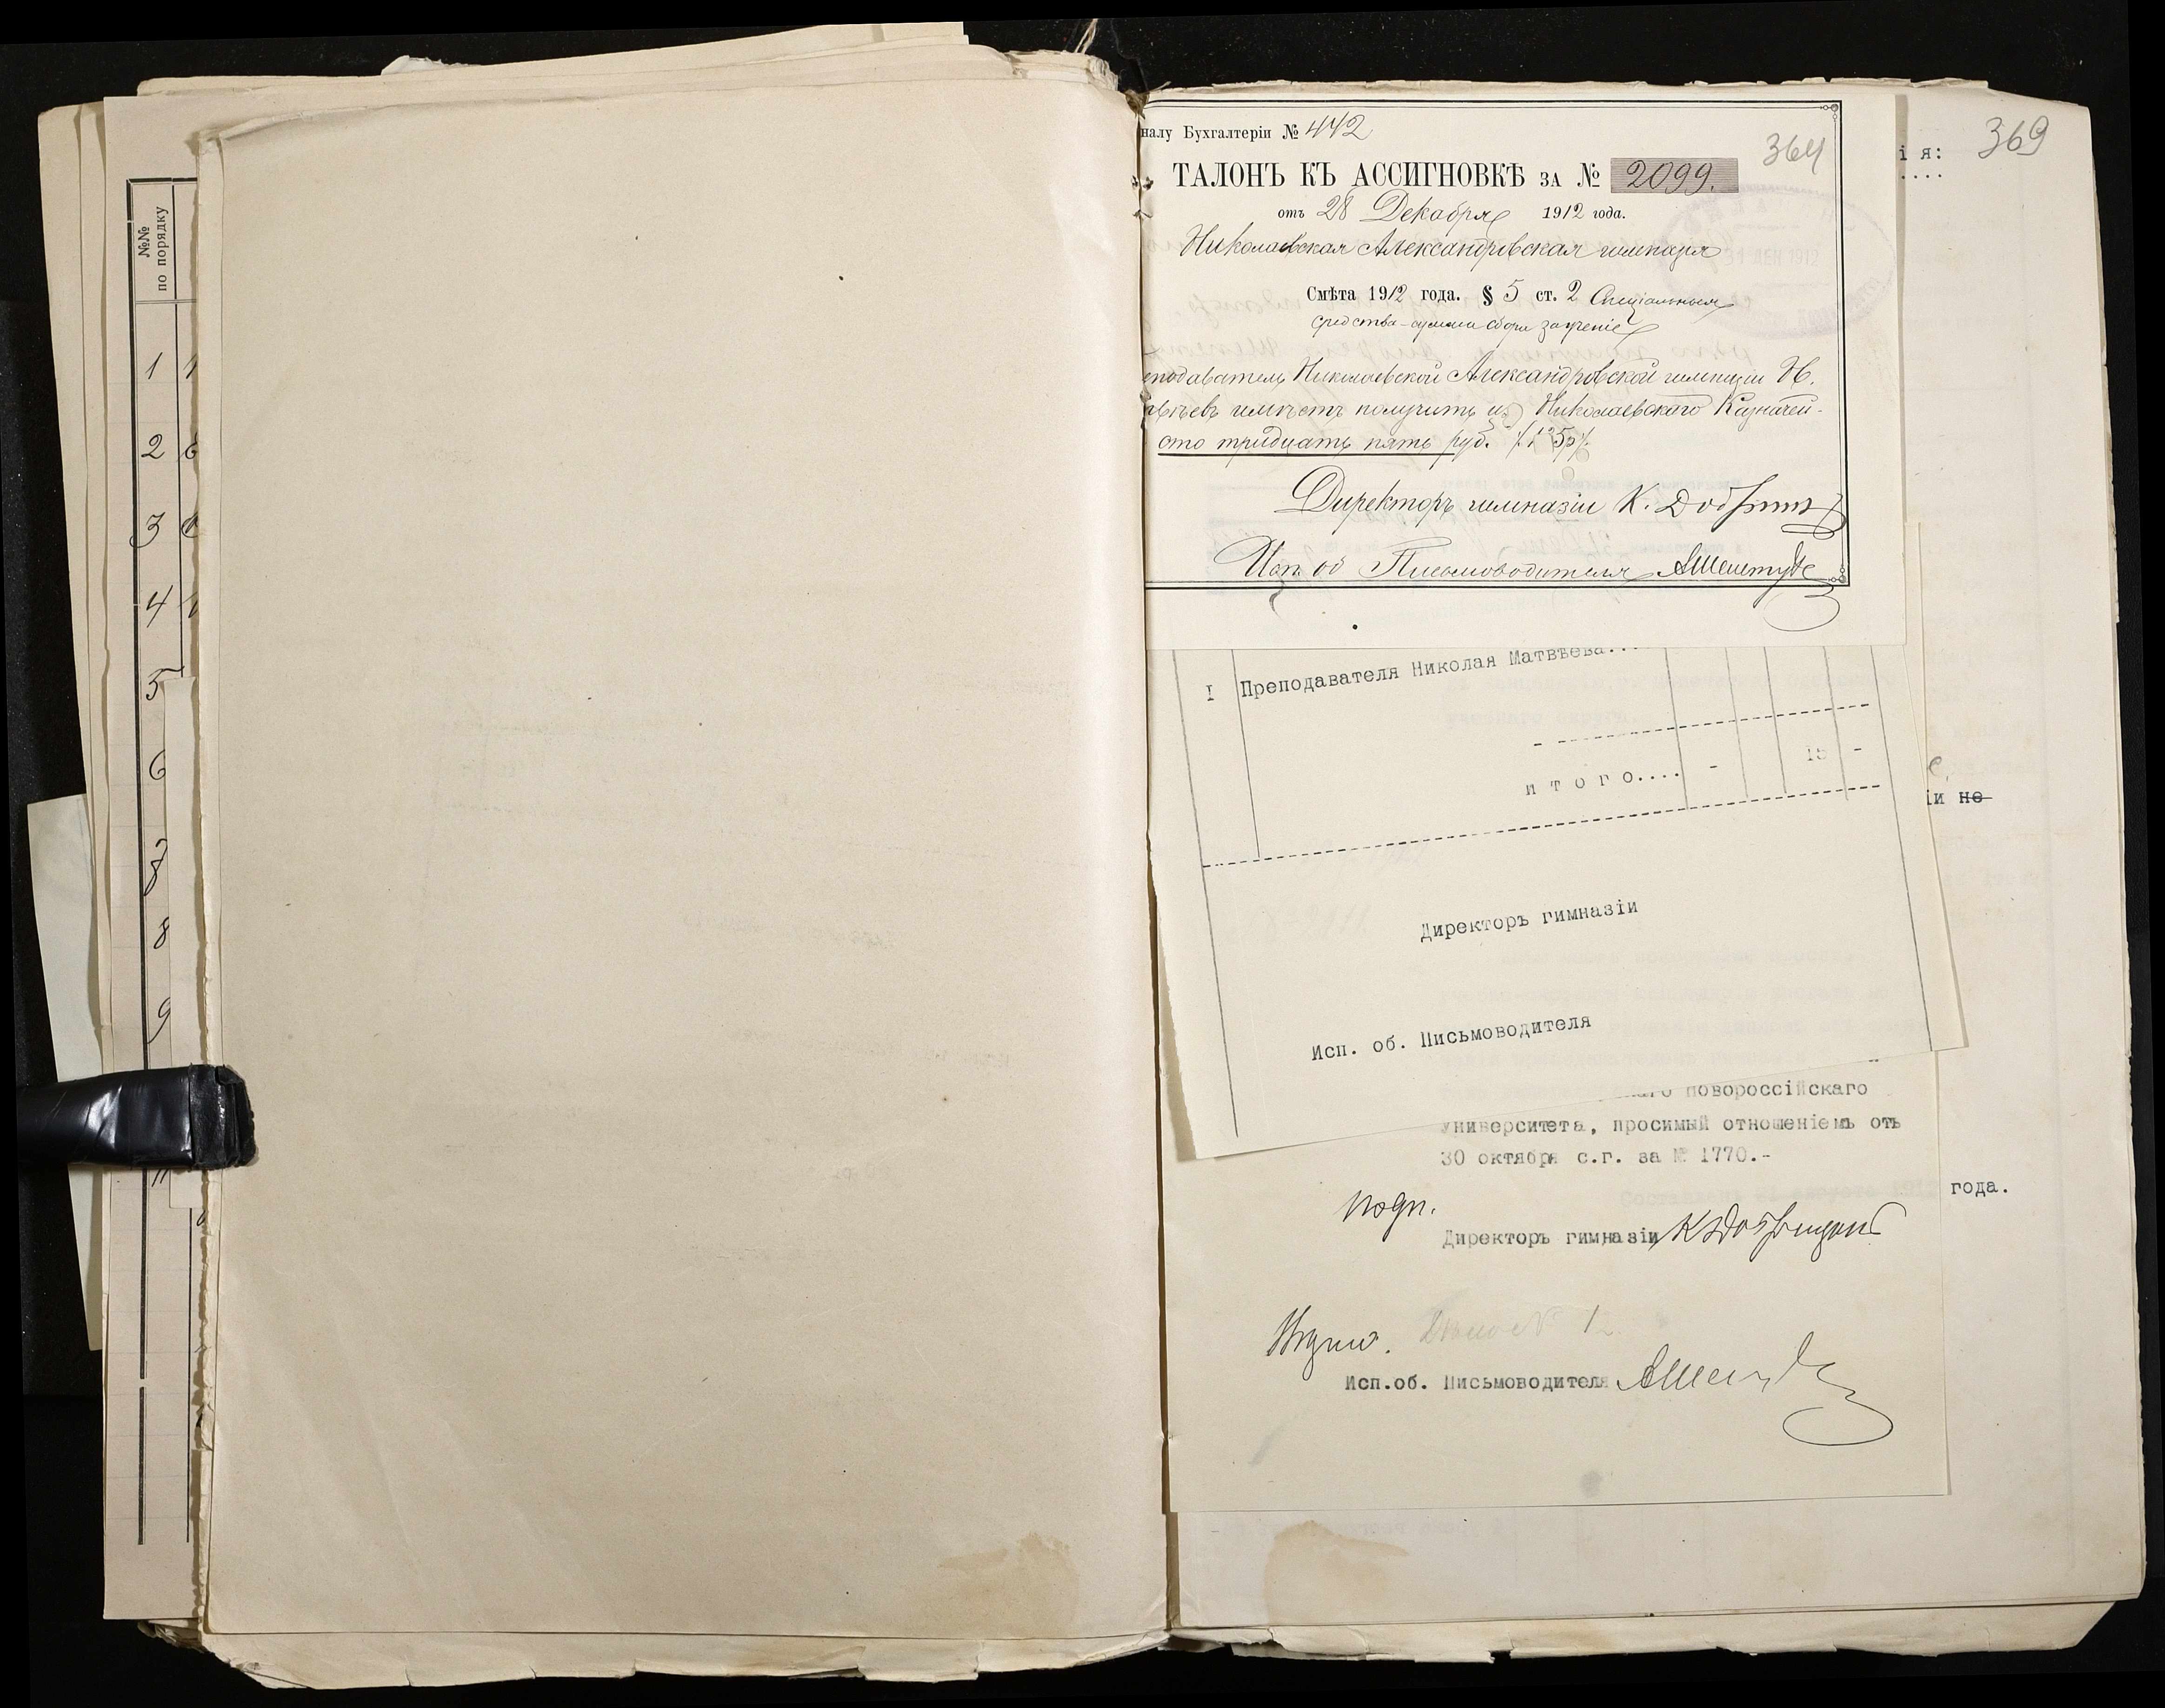 №№
по порядку
1
2
3
4
5
6
7
8
9
налу Бухгалтеріи № 442
364
369
ТАЛОНЪ КЪ АССИГНОВКѢ ЗА № 2099.
отъ 28 Декабря 1912 года.
Николаевская Александровская гимназія
Смѣта 1912 года. § 5 ст. 2 Спеціальныя
средства - сумма сбора за ученіе
еподаватель Николаевской Александровской гимназіи Н.
вѣевъ имѣетъ получить изъ Николаевскаго Казначей-
сто тридцать пять руб.
Директоръ гимназіи К.
Исп. об Письмоводителя
ія:
....
I Преподавателя Николая Матвѣева...
и т о г о.... - 15 -
іи не
Директоръ гимназіи
Исп. об. Письмоводителя
новороссійскаго
университета, просимый отношеніемъ отъ
30 октября с.г. за № 1770.-
года.
подп.
Директоръ гимназіи
Исп.об. Письмоводителя